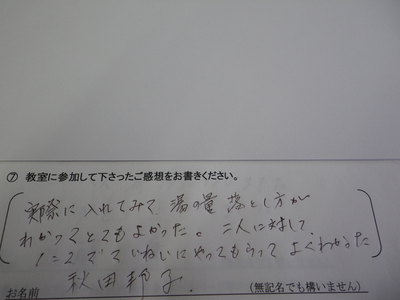 ⑦ 教室に参加して下さったご感想をお書きください。
実際に入れてみて湯の量落とし方が
わかってとてもよかった。二人に対して
1人つきでていねいにやってもらってよくわかった
お名前 秋田邦子. (無記名でも構いません)